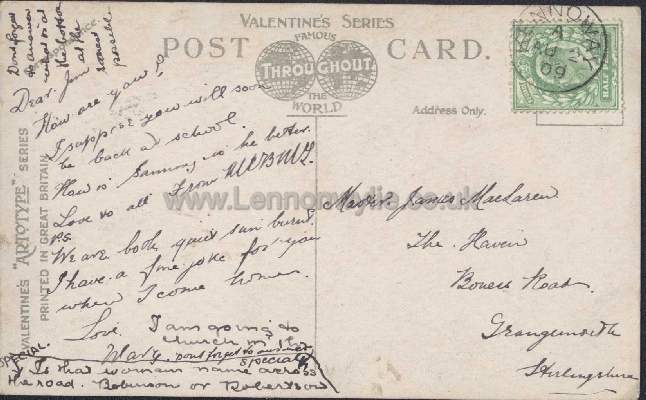 VALENTINE'S SERIES
FAMOUS
THROUGHOUT
THE
WORLD
POST CARD.
Address Only.
VALENTINE'S "ARTOTYPE" SERIES
PRINTED IN GREAT BRITAIN.
KENNOWAY
A
AU 2
09
Dont forget
to answer
what is at
the bottom
at the
soonest
possible
Dear Jim
How are you?
I suppose you will soon
be back at school.
How is Sammy, is he better.
Love to all From
P.S.
We are both quiet sun burnt.
I have a fine joke for you
when I come home.
Love.
Mary.
I am going to
church in
dont forget to answer
specially
SPECIAL.
Is that womans name across
the road. Robinson or Robertson
Master. James MacLaren
The. Haven
Bowess Road.
Grangemouth
Stirlingshire
www.Lennonwylie.co.uk